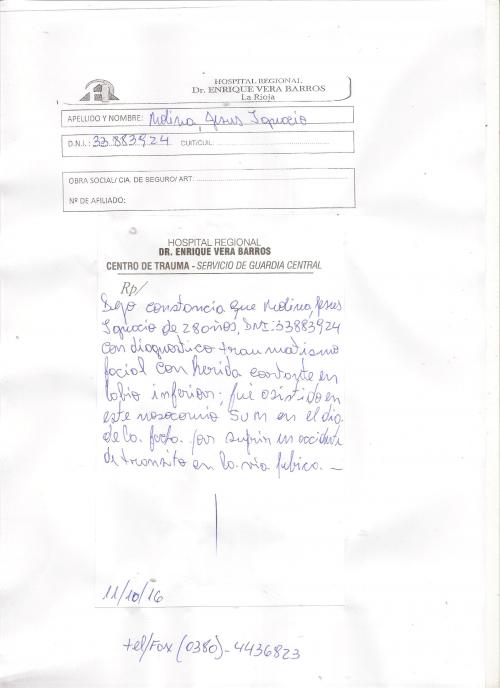 HOSPITAL REGIONAL
Dr. ENRIQUE VERA BARROS
La Rioja
APELLIDO Y NOMBRE: Molina Jesus Ignacio
D.N.I.: 33.883924 CUIT/CUIL:
OBRA SOCIAL/ CIA. DE SEGURO/ ART:
Nº DE AFILIADO:
HOSPITAL REGIONAL
DR. ENRIQUE VERA BARROS
CENTRO DE TRAUMA - SERVICIO DE GUARDIA CENTRAL
Rp/
Dejo constancia que Molina, Jesus
Ignacio de 28 años, DNI: 33883924
con diagnostico traumatismo
facial con herida cortante en
labio inferior; fué asistido en
este nosocomio en el dia
de la fecha por sufrir un accidente
de transito en la via publica. —
11/10/16
tel/Fax (0380)-4436823